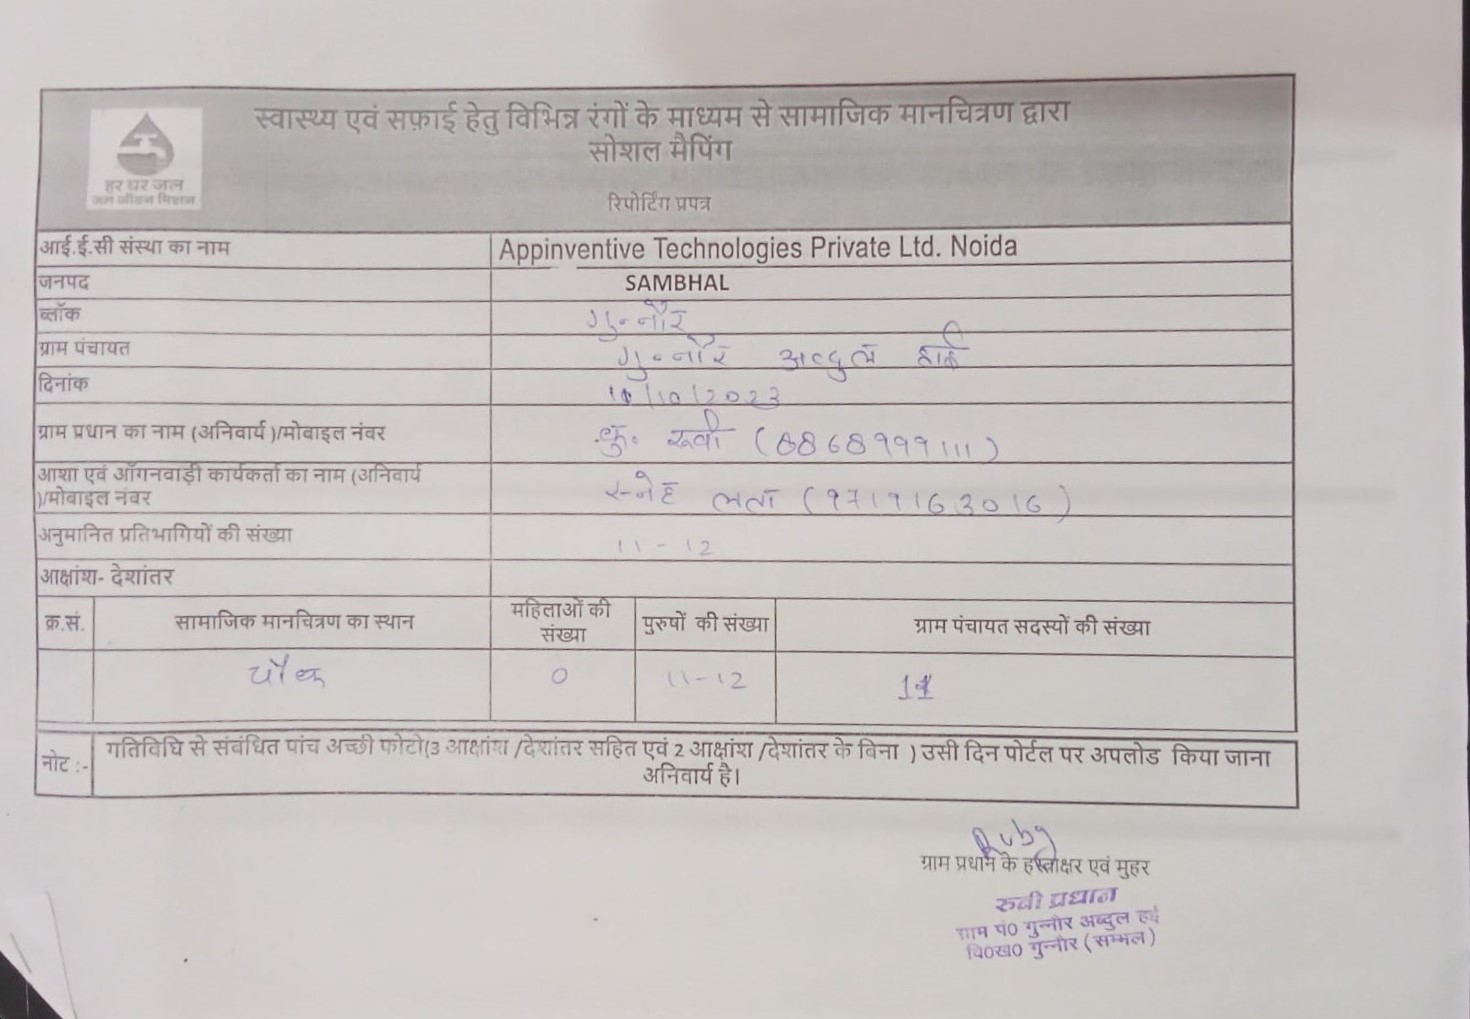 स्वास्थ्य एवं सफ़ाई हेतु विभिन्न रंगों के माध्यम से सामाजिक मानचित्रण द्वारा
सोशल मैपिंग
हर घर जल
जल जीवन मिशन
रिपोर्टिंग प्रपत्र
आई.ई.सी संस्था का नाम Appinventive Technologies Private Ltd. Noida
जनपद SAMBHAL
ब्लॉक गुन्नौर
ग्राम पंचायत गुन्नौर अब्दुल हई
दिनांक /10/2023
ग्राम प्रधान का नाम (अनिवार्य )/मोबाइल नंबर कु० रूबी (8868999111)
आशा एवं ऑगनवाड़ी कार्यकर्ता का नाम (अनिवार्य
)/मोबाइल नंबर स्नेह लता (9719163016)
अनुमानित प्रतिभागियों की संख्या 11-12
आक्षांश- देशांतर
क्र.सं. सामाजिक मानचित्रण का स्थान महिलाओं की संख्या पुरुषों की संख्या ग्राम पंचायत सदस्यों की संख्या
चौक 0 11-12 11
नोट :- गतिविधि से संबंधित पांच अच्छी फोटो(3 आक्षांश /देशांतर सहित एवं 2 आक्षांश /देशांतर के बिना ) उसी दिन पोर्टल पर अपलोड किया जाना
अनिवार्य है।
Ruby
ग्राम प्रधान के हस्ताक्षर एवं मुहर
रुबी प्रधान
ग्राम पं0 गुन्नौर अब्दुल हई
वि0ख0 गुन्नौर (सम्भल)